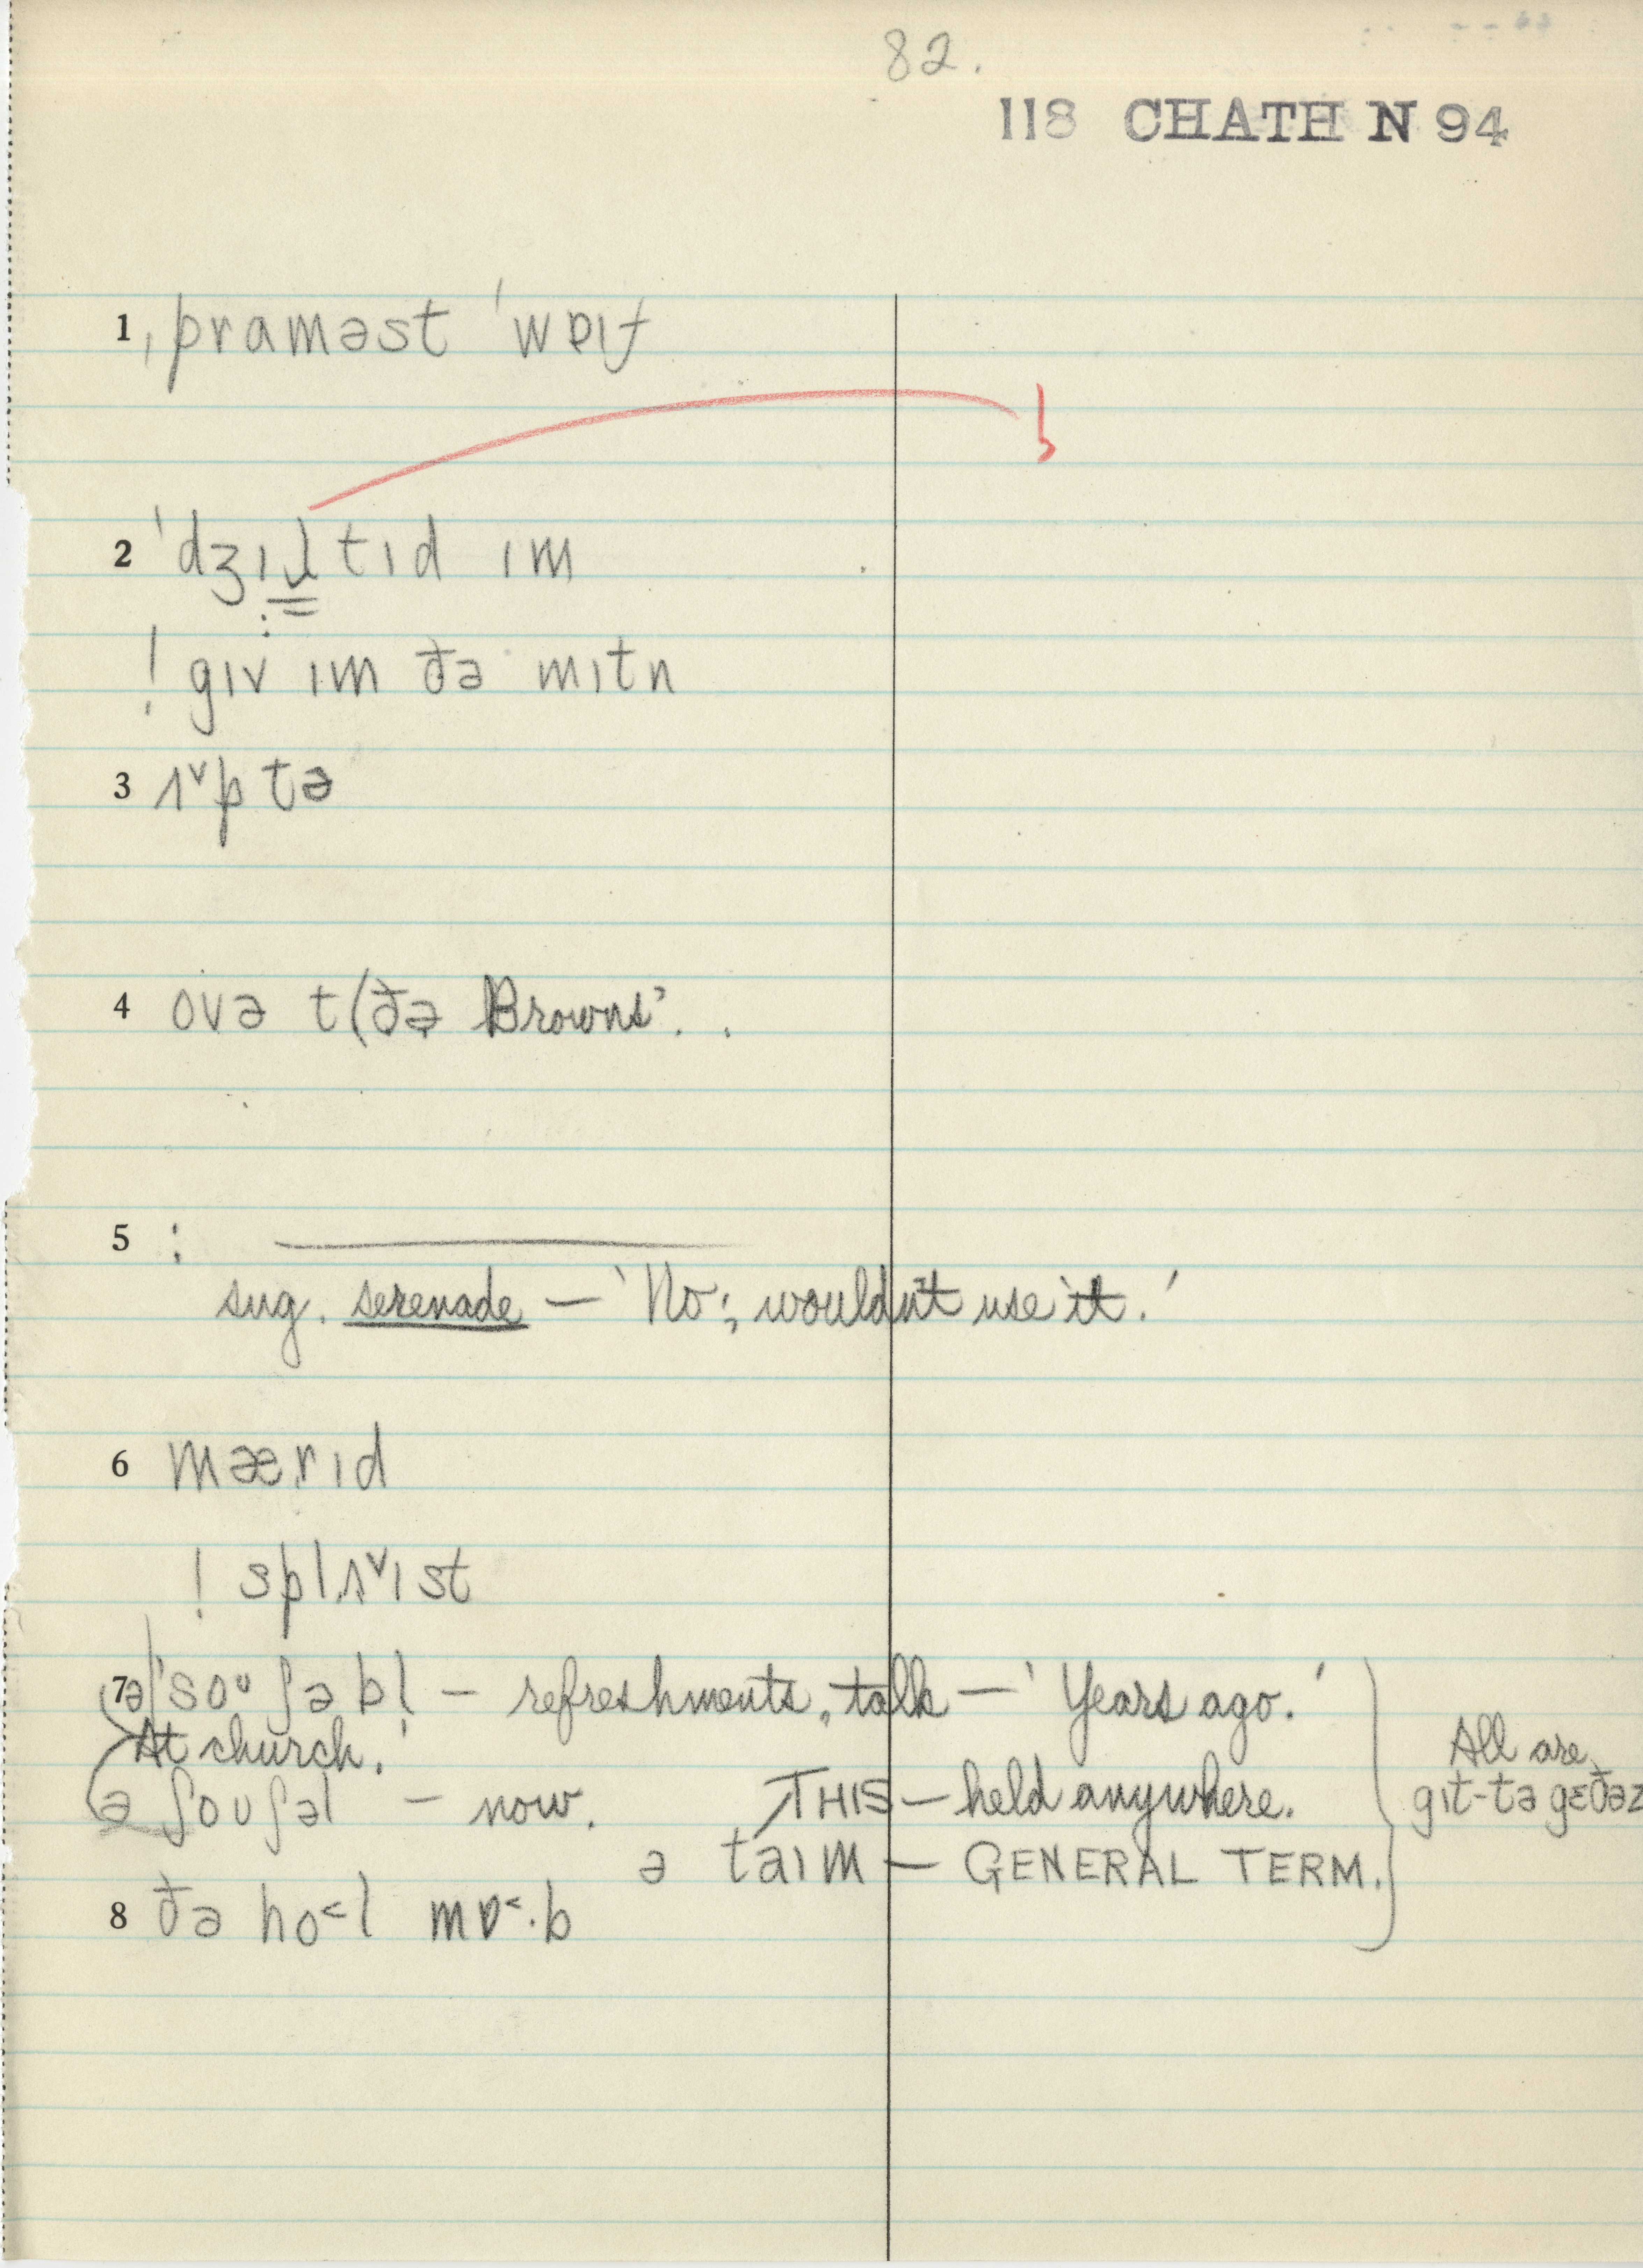 82.
118 CHATH N 94
1 ˌpraməst ˈwɐɪf
2 ˈdʒɪɫtɪd ɪm
! gɪv ɪm ðə mɪtn
3 ʌ˅p tə
4 ovə t(ðə Browns'. .
5 : —
sug. serenade — 'No; wouldn't use it.'
6 mærɪd
! splʌ˅ɪst
7 ə ˈsoᴜʃəbl̩ — refreshments, talk — 'Years ago.'
At church.'
ə ʃoᴜʃəl — now. THIS — held anywhere.
ə taɪm — GENERAL TERM.
All are
gɪt-tə gɛðəz
8 ðə ho˂l mɒ˂·b